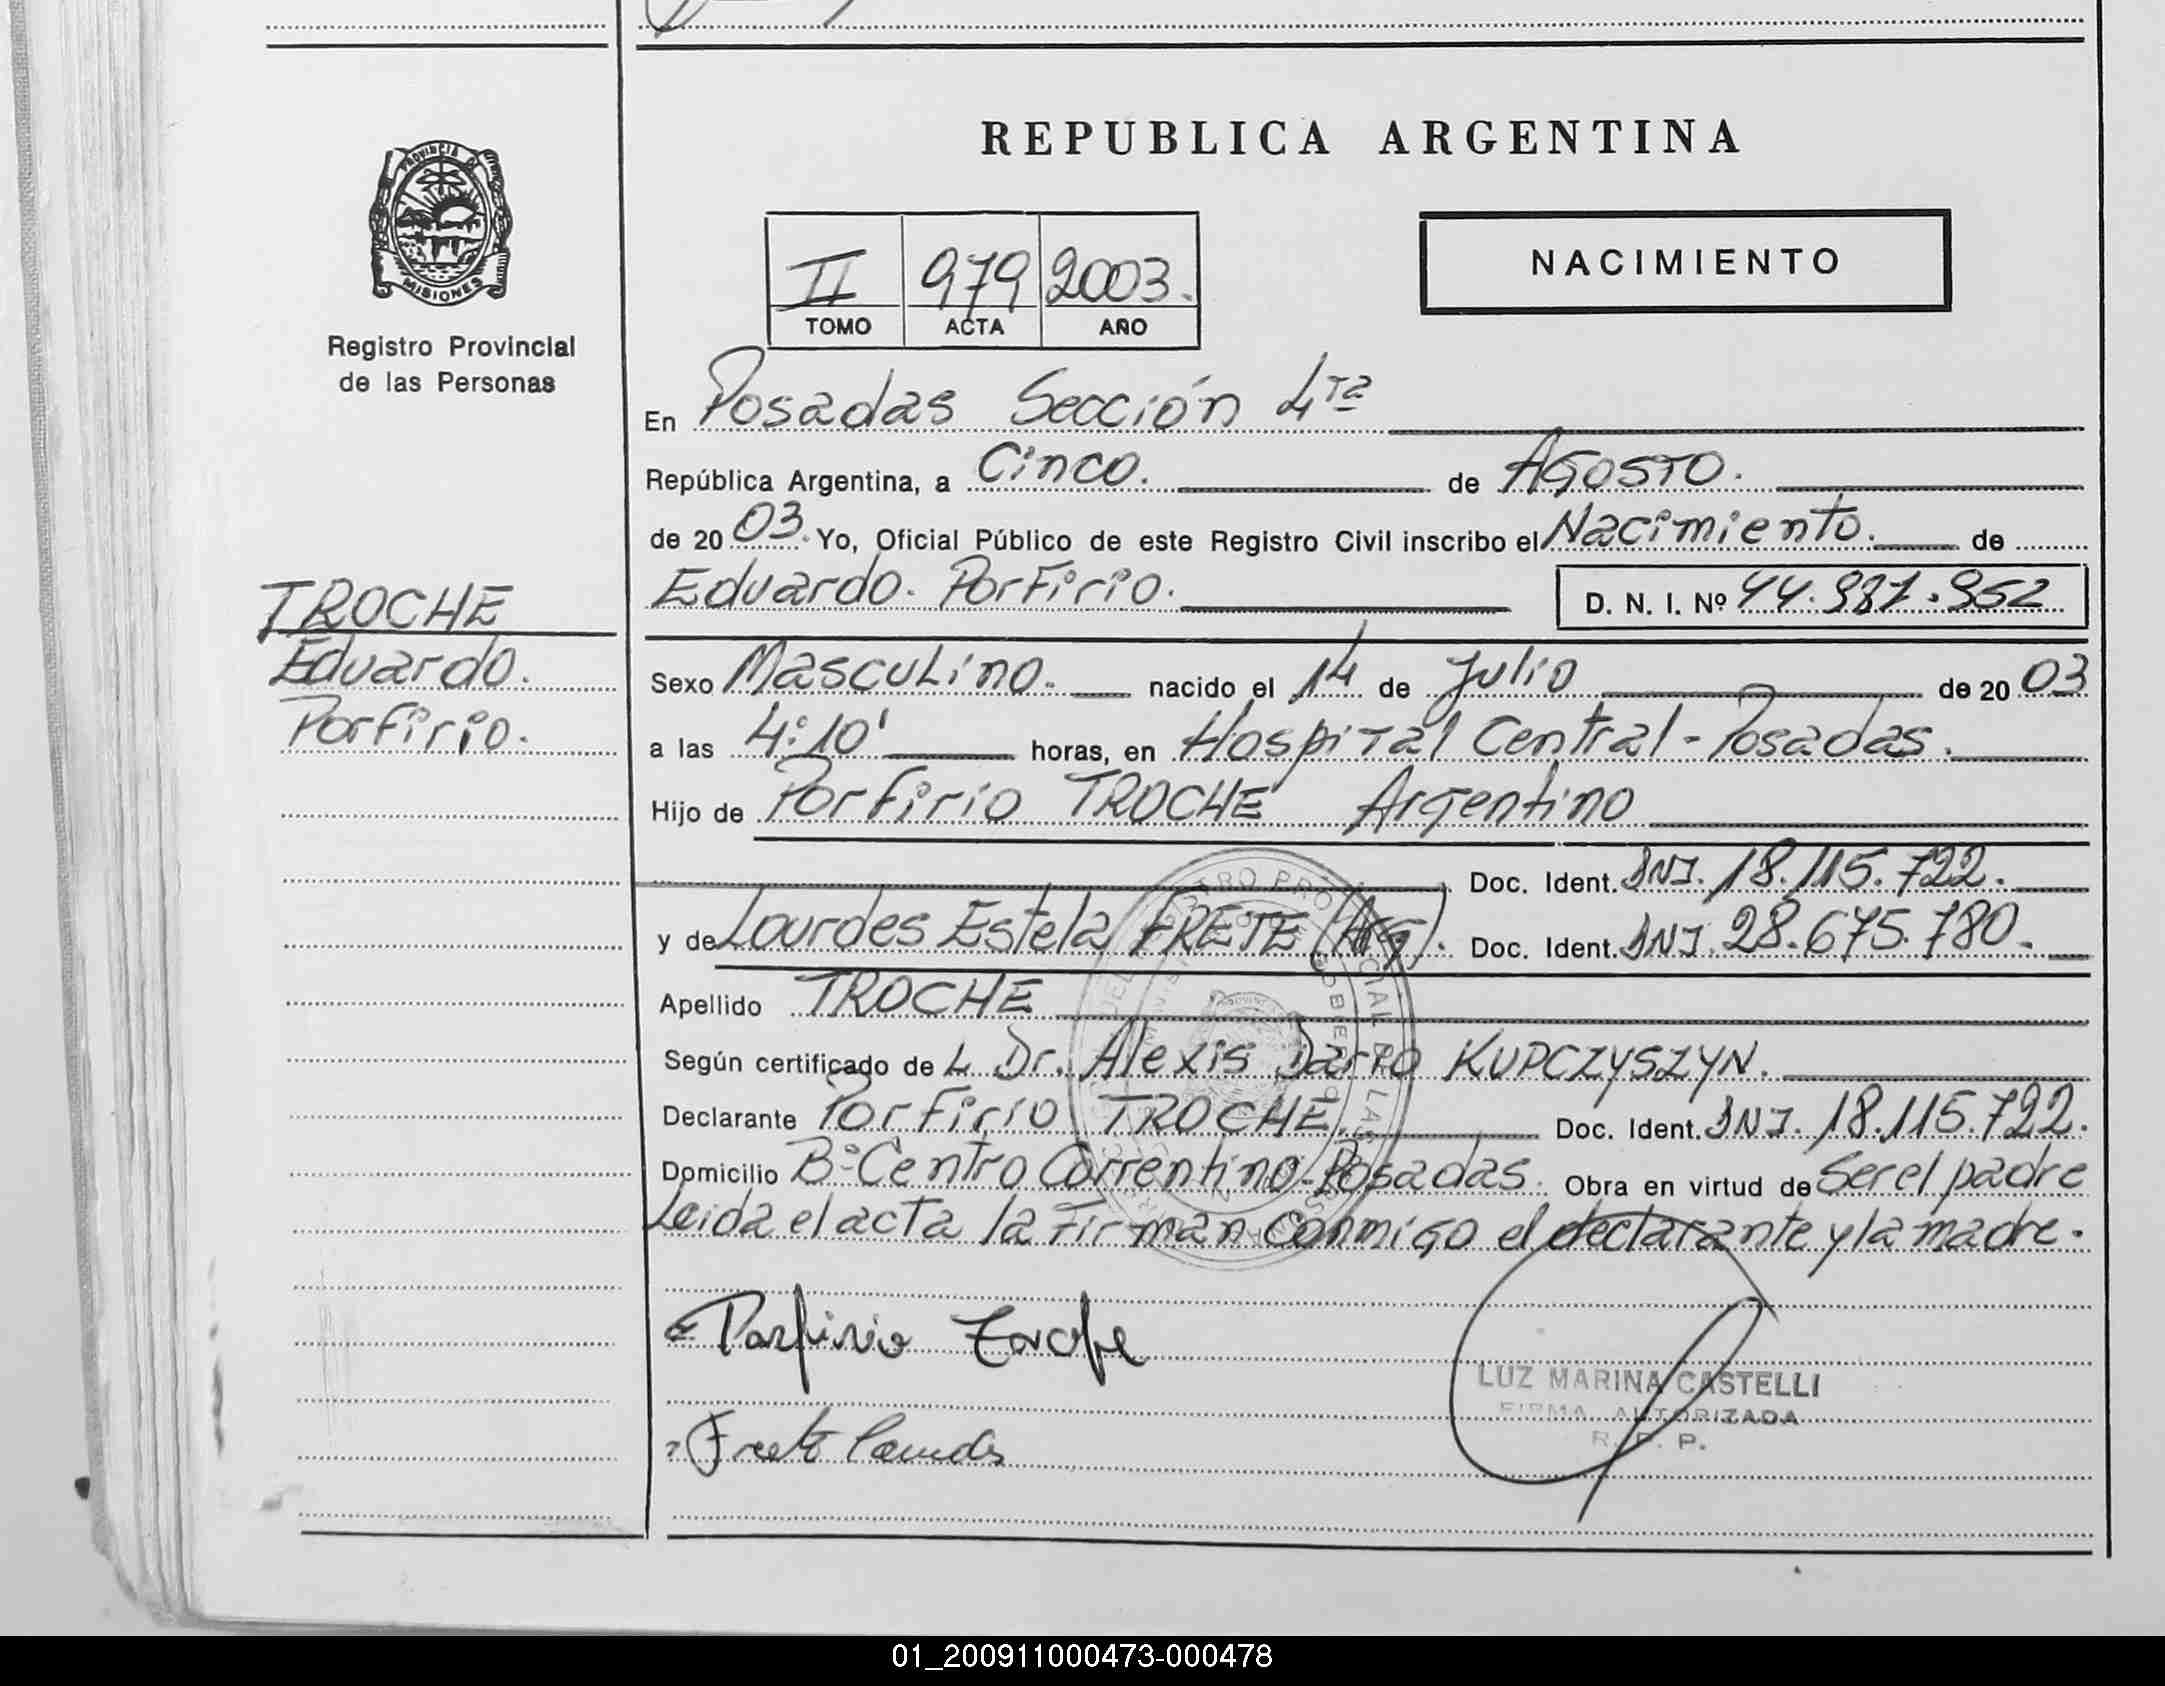 REPUBLICA ARGENTINA
PROVINCIA DE
MISIONES
Registro Provincial
de las Personas
II 979 2003.
TOMO ACTA AÑO
NACIMIENTO
En Posadas Sección 4ta
República Argentina, a Cinco. de AGOSTO.
de 2003. Yo, Oficial Público de este Registro Civil inscribo el Nacimiento. de
Eduardo. Porfirio. D. N. I. Nº
TROCHE
Eduardo.
Porfirio.
Sexo Masculino. nacido el 14 de Julio de 2003
a las 4:10' horas, en Hospital Central - Posadas.
Hijo de Porfirio TROCHE Argentino
Doc. Ident. DNI. 18.115.722.
y de Lourdes Estela FRETE (Arg). Doc. Ident. DNI. 28.675.780.
Apellido TROCHE
Según certificado de L Dr. Alexis Dario KUPCZYSZYN.
Declarante Porfirio TROCHE. Doc. Ident. DNI. 18.115.722.
Domicilio Bº Centro Correntino - Posadas. Obra en virtud de Ser el padre
Leida el acta la firman conmigo el declarante y la madre.
Porfirio Troche
LUZ MARINA CASTELLI
FIRMA AUTORIZADA
R. P. P.
01_200911000473-000478